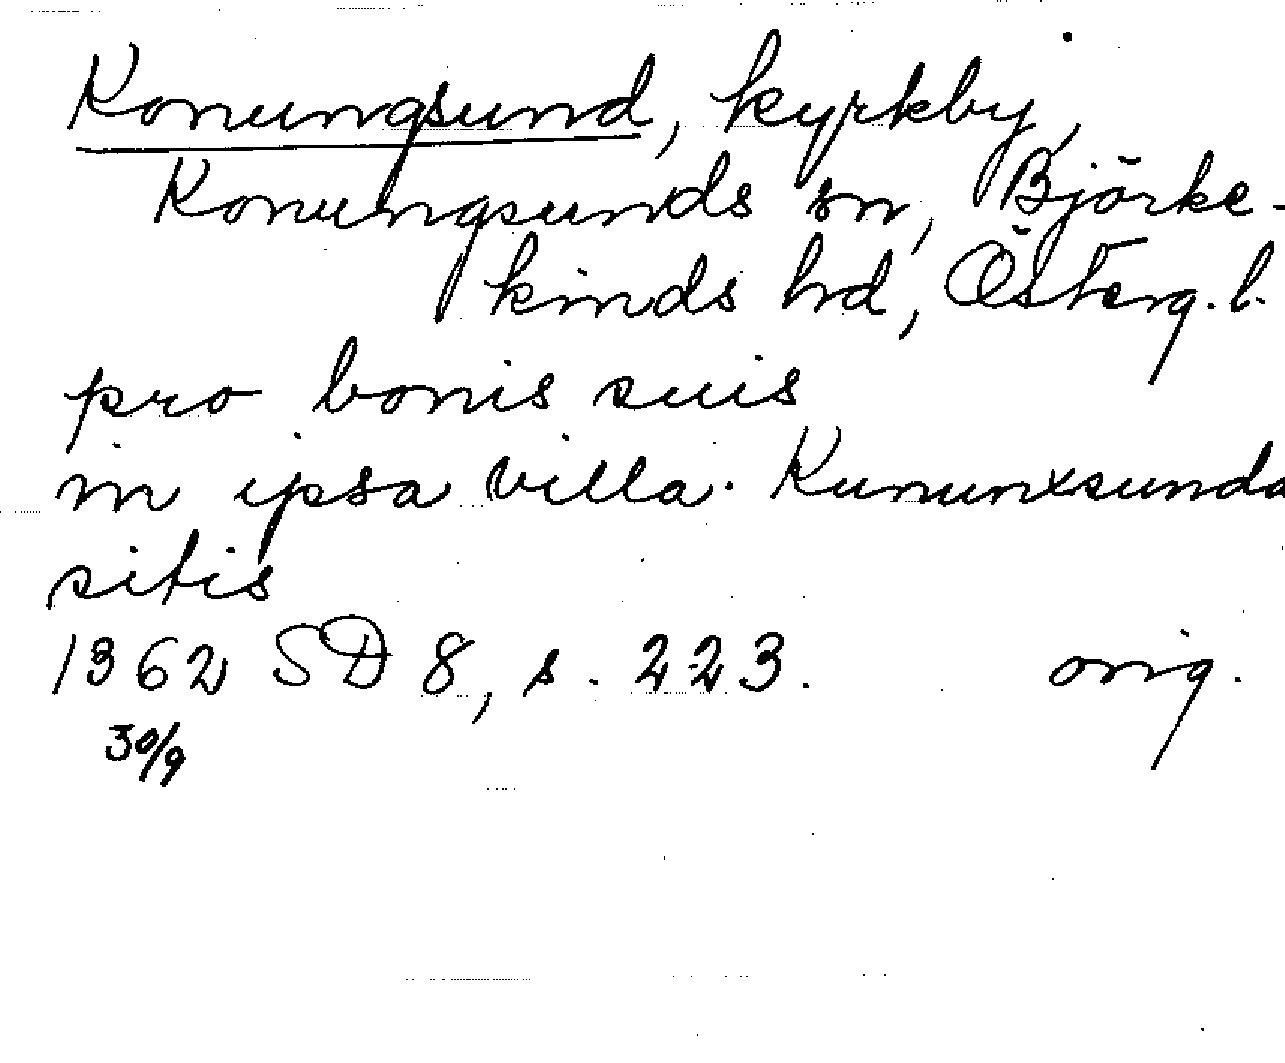 Konungsund, kyrkby,
Konungsunds sn, Björke-
kinds hd, Österg. l.
pro bonis suis
in ipsa villa. Kununxsunda
sitis
1362 SD 8, s. 223. orig.
30/9